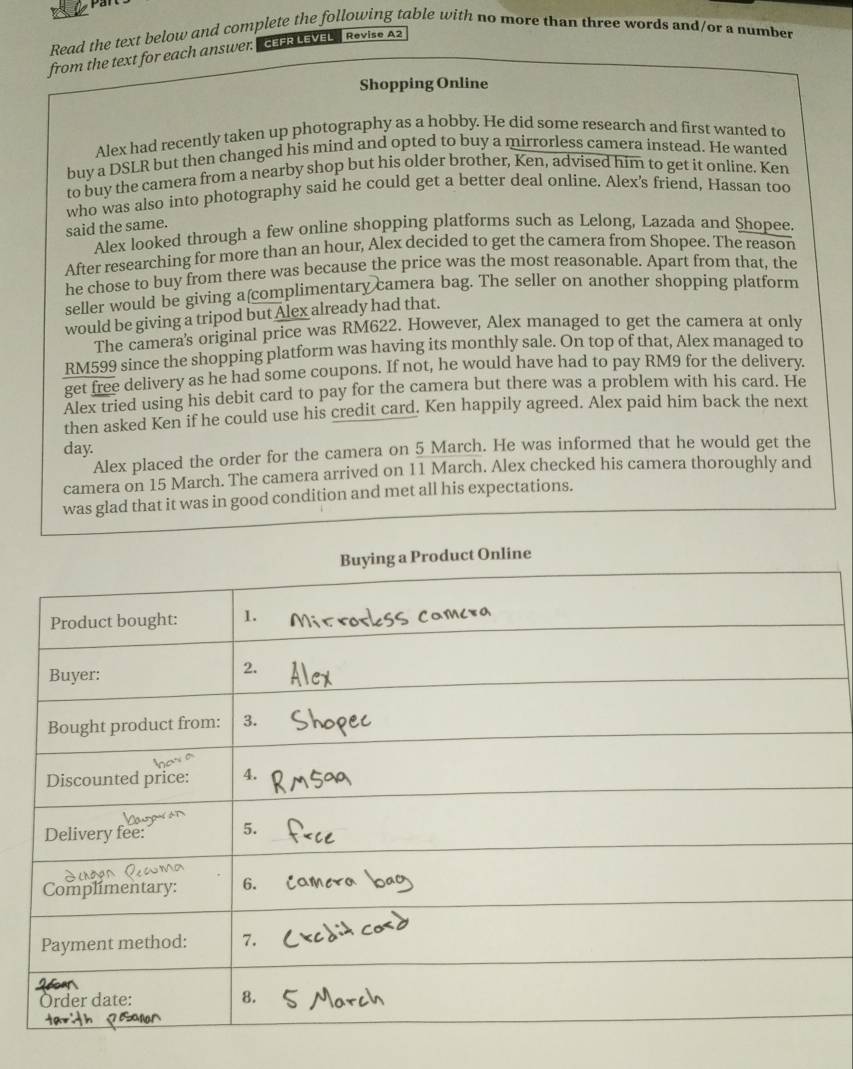 Part
Read the text below and complete the following table with no more than three words and/or a number
from the text for each answer. CEFR LEVEL Revise A2
Shopping Online
Alex had recently taken up photography as a hobby. He did some research and first wanted to
buy a DSLR but then changed his mind and opted to buy a mirrorless camera instead. He wanted
to buy the camera from a nearby shop but his older brother, Ken, advised him to get it online. Ken
who was also into photography said he could get a better deal online. Alex's friend, Hassan too
said the same.
Alex looked through a few online shopping platforms such as Lelong, Lazada and Shopee.
After researching for more than an hour, Alex decided to get the camera from Shopee. The reason
he chose to buy from there was because the price was the most reasonable. Apart from that, the
seller would be giving a complimentary camera bag. The seller on another shopping platform
would be giving a tripod but Alex already had that.
The camera's original price was RM622. However, Alex managed to get the camera at only
RM599 since the shopping platform was having its monthly sale. On top of that, Alex managed to
get free delivery as he had some coupons. If not, he would have had to pay RM9 for the delivery.
Alex tried using his debit card to pay for the camera but there was a problem with his card. He
then asked Ken if he could use his credit card. Ken happily agreed. Alex paid him back the next
day.
Alex placed the order for the camera on 5 March. He was informed that he would get the
camera on 15 March. The camera arrived on 11 March. Alex checked his camera thoroughly and
was glad that it was in good condition and met all his expectations.
Buying a Product Online
Product bought: 1. Mirrorless camera
Buyer: 2. Alex
Bought product from: 3. Shopee
harga
Discounted price: 4. RM599
bayaran
Delivery fee: 5. free
dengan percuma
Complimentary: 6. camera bag
Payment method: 7. Credit card
Order date: 8. 5 March
tarikh pesanan